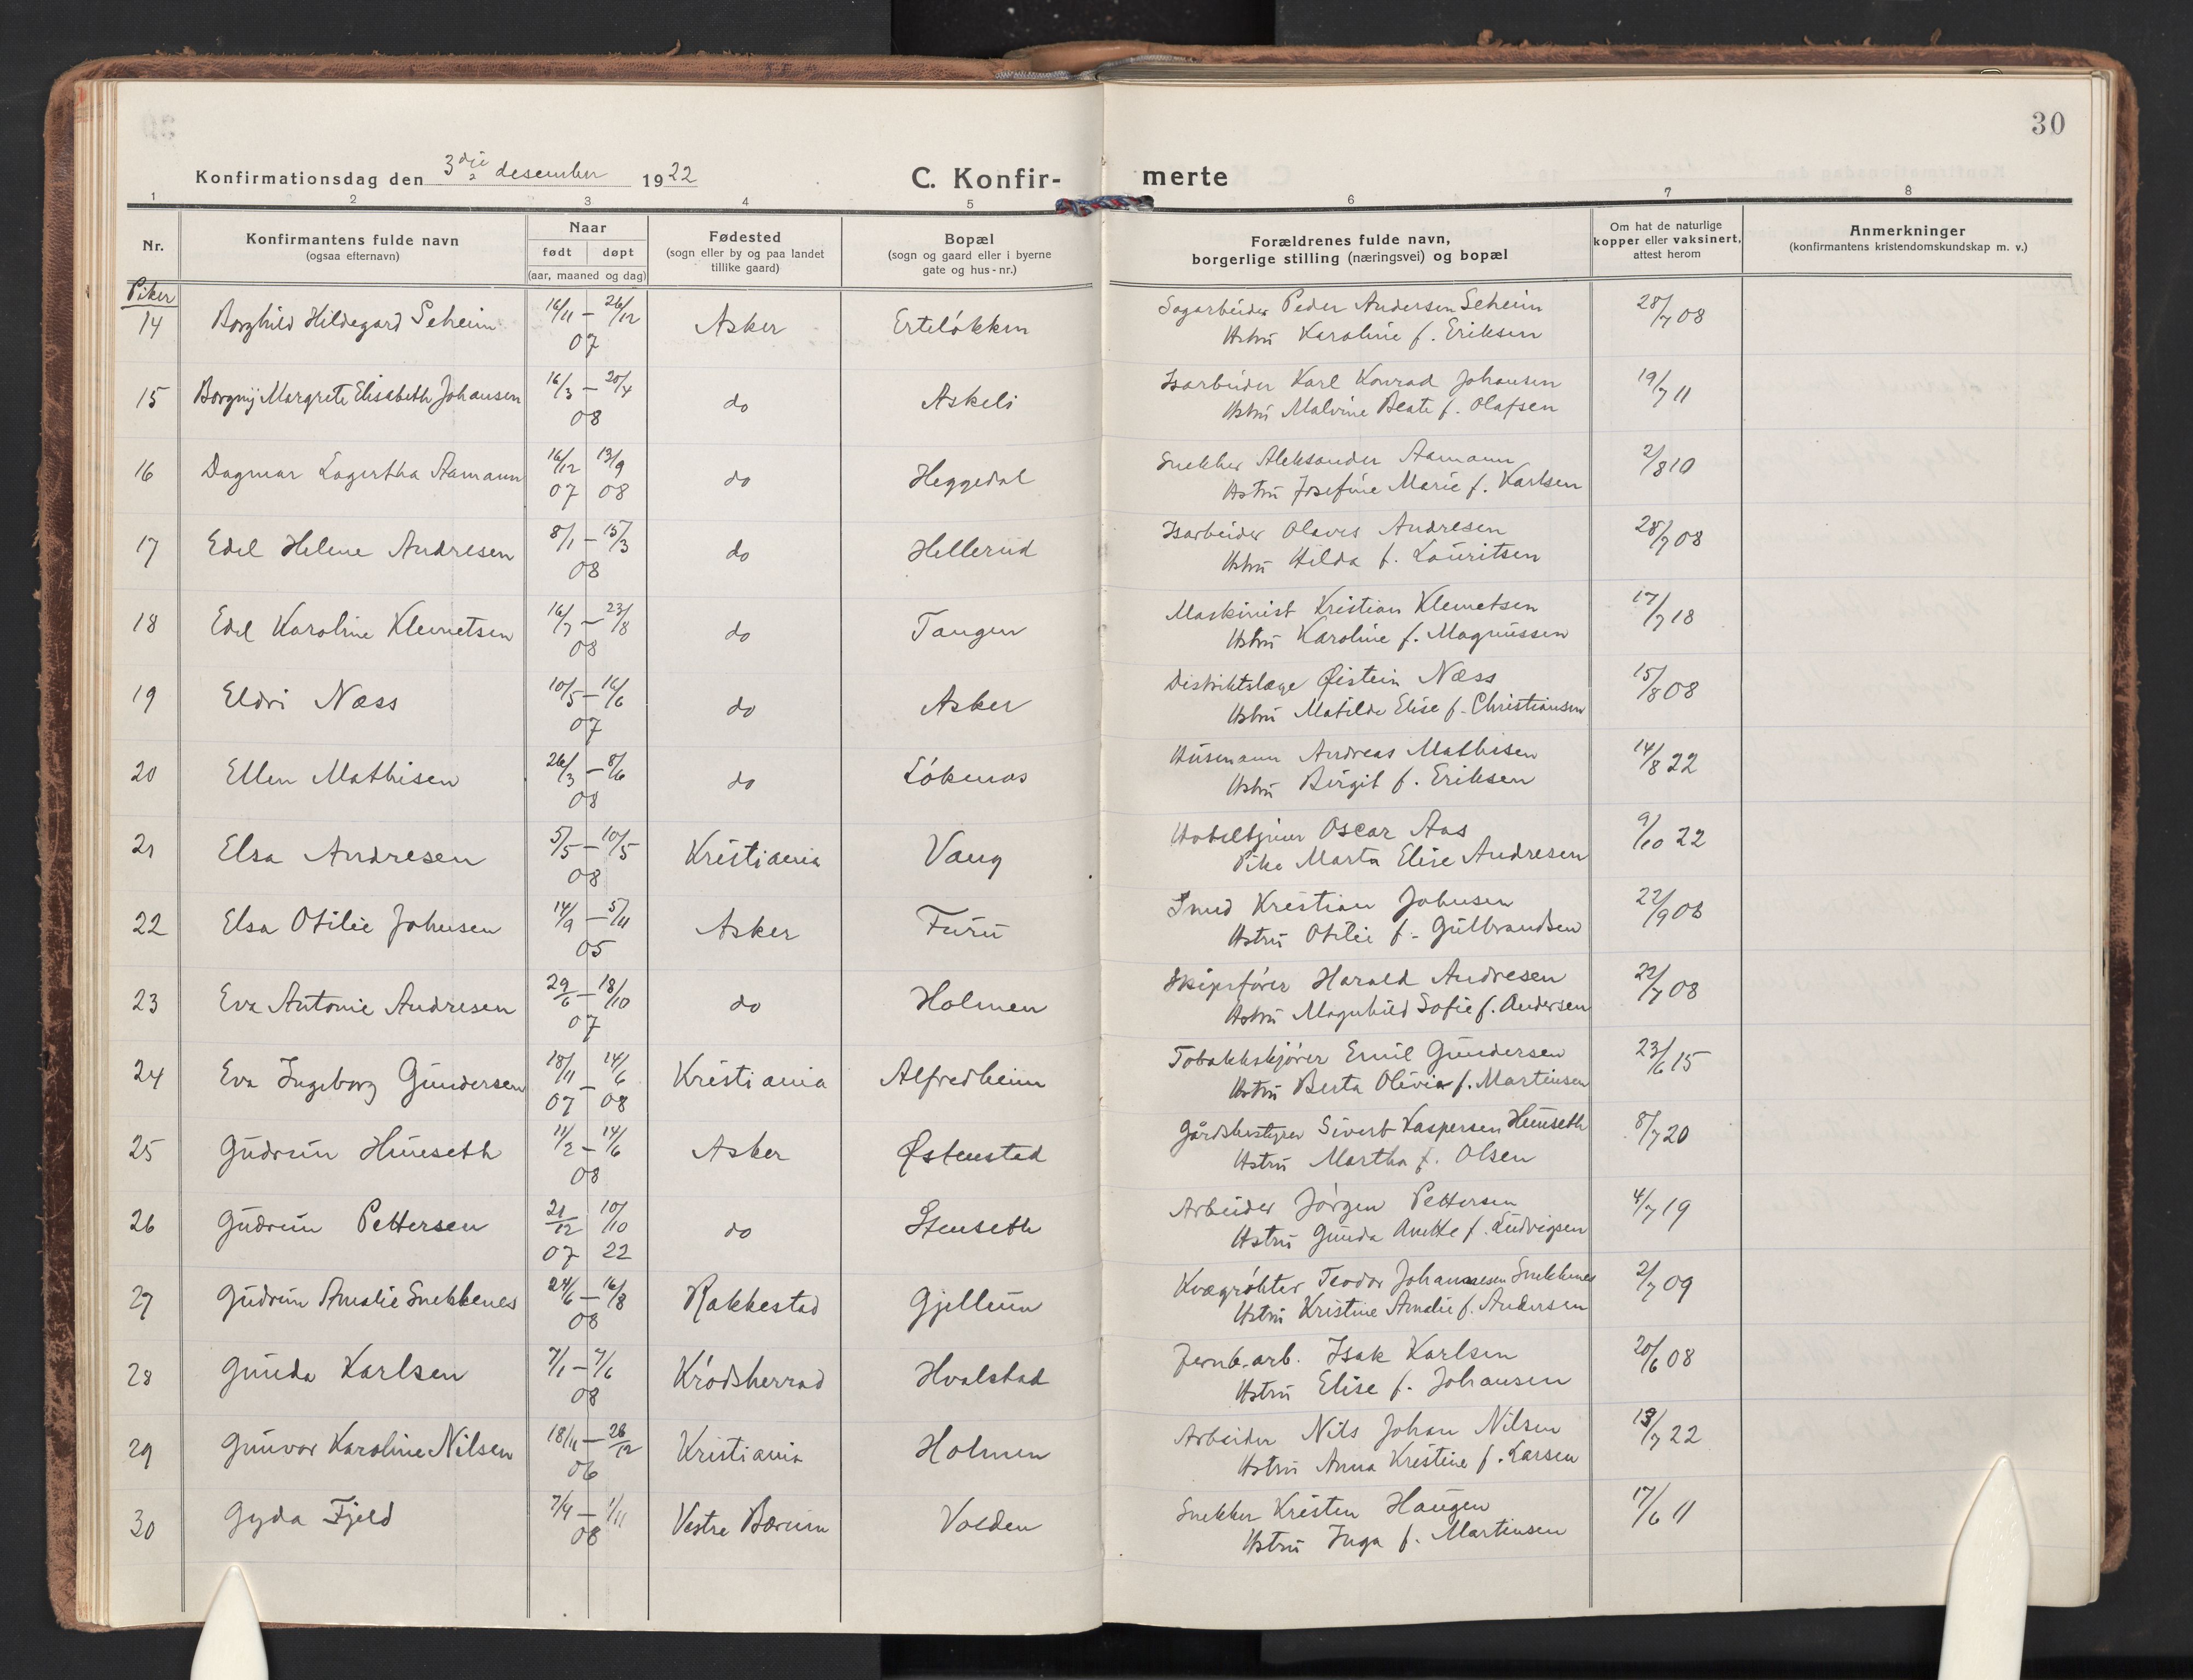 30
Konfirmationsdag den 3dje desember 1922
C. Konfir- merte
1 2 3 4 5 6 7 8
Nr.
Konfirmantens fulde navn
(ogsaa efternavn)
Naar
født døpt
(aar, maaned og dag)
Fødested
(sogn eller by og paa landet
tillike gaard)
Bopæl
(sogn og gaard eller i byerne
gate og hus-nr.)
Forældrenes fulde navn,
borgerlige stilling (næringsvei) og bopæl
Om hat de naturlige
kopper eller vaksinert,
attest herom
Anmerkninger
(konfirmantens kristendomskundskap m. v.)
Piker
14 Borghild Hildegard Seheim 16/11 — 26/12 07 Asker Erteløkken Sagarbeider Peder Andersen Seheim 28/7 08
Hstru Karoline f. Eriksen
15 Borgny Margrete Elisabeth Johansen 16/3 — 20/4 08 do Askeli Isarbeider Karl Konrad Johansen 19/7 11
Hstru Malvine Beate f. Olafsen
16 Dagmar Lagertha Aamann 16/12 07 13/9 08 do Heggedal Snekker Aleksander Aamann 2/8 10
Hstru Josefine Marie f. Karlsen
17 Edel Helene Andresen 8/1 — 15/3 08 do Hellerud Isarbeider Olaves Andresen 28/7 08
Hstru Hilda f. Lauritsen
18 Edel Karoline Klemetsen 16/7 — 23/8 08 do Tangen Maskinist Kristian Klemetsen 17/7 18
Hstru Karoline f. Magnussen
19 Eldri Næss 10/5 — 16/6 07 do Asker Distriktslæge Øistein Næss 15/8 08
Hstru Matilde Elise f. Christiansen
20 Ellen Mathisen 26/3 — 8/6 08 do Løkenes Husmann Andreas Mathisen 14/8 22
Hstru Birgit f. Eriksen
21 Elsa Andresen 5/5 — 10/5 08 Kristiania Vang Hoteltjener Oscar Aas 9/10 22
Pike Marta Elise Andresen
22 Elsa Otilie Johnsen 14/9 — 5/11 05 Asker Furu Smed Kristian Johnsen 22/9 06
Hstru Otilie f. Gulbrandsen
23 Eva Antonie Andresen 29/6 — 18/10 07 do Holmen Skipsfører Harald Andresen 22/7 08
Hstru Magnhild Sofie f. Andersen
24 Eva Ingeborg Gundersen 18/11 07 — 14/6 08 Kristiania Alfredheim Tobakkskjører Emil Gundersen 23/6 15
Hstru Berta Olivia f. Martinsen
25 Gudrun Huuseth 11/2 — 14/6 08 Asker Østensted Gårdsbestyrer Sivert Kaspersen Huuseth 8/7 20
Hstru Martha f. Olsen
26 Gudrun Pettersen 21/12 07 10/10 22 do Stenseth Arbeider Jørgen Pettersen 4/7 19
Hstru Gunda Anette f. Ludvigsen
27 Gudrun Amalie Snekkenes 24/6 — 16/8 08 Rakkestad Gjellum Kvægrøkter Teodor Johannesen Snekkenes 2/7 09
Hstru Kristine Amalie f. Andersen
28 Gunda Karlsen 7/1 — 7/6 08 Krødsherrad Hvalstad Jernb.arb. Isak Karlsen 20/6 08
Hstru Elise f. Johansen
29 Gunvor Karoline Nilsen 18/11 — 26/12 06 Kristiania Holmen Arbeider Nils Johan Nilsen 13/7 22
Hstru Anna Kristine f. Larsen
30 Gyda Fjeld 7/4 — 1/11 08 Vestre Bærum Volden Snekker Kristen Haugen 17/6 11
Hstru Inga f. Martinsen